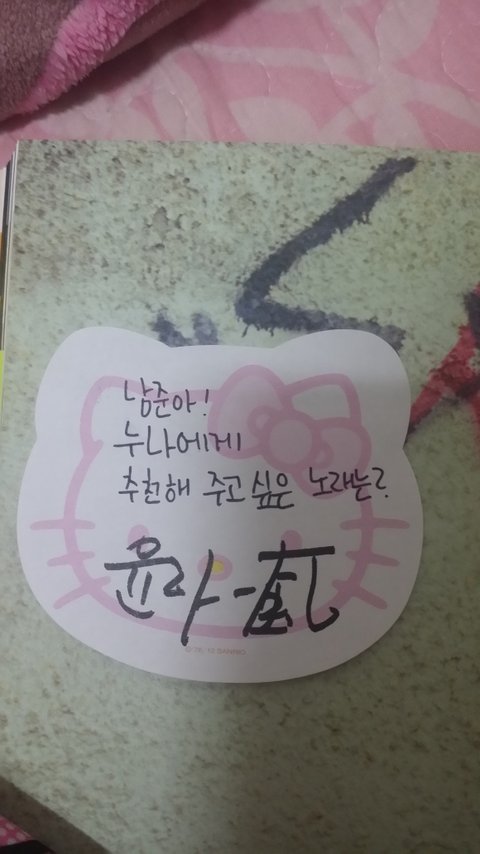 남준아!
누나에게
추천해 주고 싶은 노래는?
© 76, 12 SANRIO